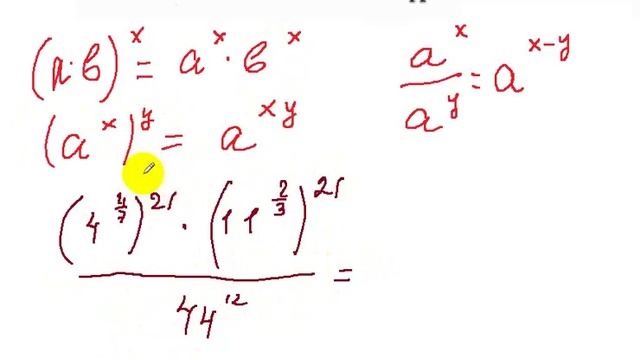 (a·b)^x = a^x · b^x
a^x / a^y = a^(x-y)
(a^x)^y = a^(xy)
(4^(4/7))^21 · (11^(2/3))^21
44^12 =